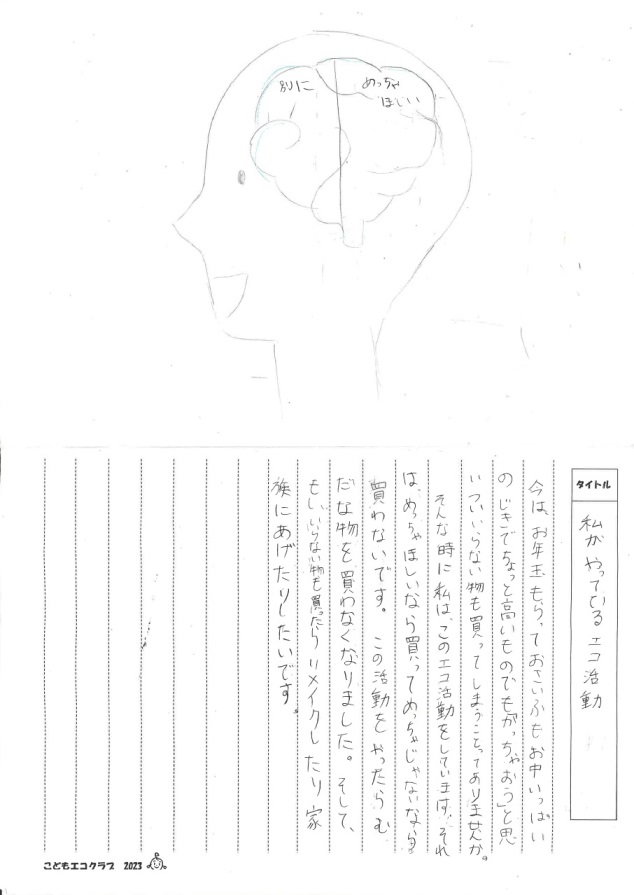 別に
めっちゃ
ほしい
タイトル
私がやっているエコ活動
今は、お年玉もらっておさいふもお中いっぱい
のじきでちょっと高いものでも「かっちゃおう」と思
いついいらない物も買ってしまうことってありませんか。
そんな時に私は、このエコ活動をしています。それ
は、めっちゃほしいなら買ってめっちゃじゃないなら
買わないです。この活動をやったらむ
だな物を買わなくなりました。そして、
もし、いらない物も買ったらリメイクしたり家
族にあげたりしたいです。
こどもエコクラブ 2023